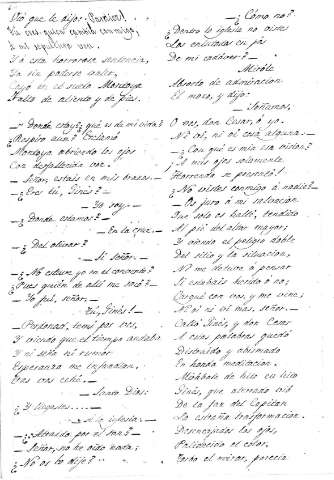 Vió que le dijo:
Tú eres quien cambió conmigo,
á mi sepultura ven.
Y á esta horrorosa sentencia,
Ya sin poderse valer,
Cayó en el suelo Montoya
Falto de aliento y de pies.
— ¿Donde estoy? ¿qué es de mi vida?
¿Respiro aun? Exclamó
Montoya abriendo los ojos
Con desfallecida voz.
— Señor, estais en mis brazos.
— ¿Eres tú, Ginés?
— Yo soy.
— ¿Donde estamos?
— En la cruz.
— ¿Del olivar?
— Si señor.
— ¿No estuve yo en el convento?
¿Pues quién de allí me sacó?
— Yo fuí, señor.
— ¡Tú, Ginés!
— Perdonad, temí por vos,
Y viendo que el tiempo andaba
Y ni seña ni rumor
Esperanza me infundian,
Tras vos eché.
— Santo Dios!
¿Y llegastes....
— á la iglesia.
— ¿Atraido por el son?
— Señor, no he oido nada;
¿No os lo dije?
— ¿Cómo no?
¿Dentro la iglesia no oistes
Las enlutadas en pos
De mi cadáver?
Miróle
Absorto de admiracion
El mozo, y dijo:
— Soñamos,
O vos, don Cesar, ó yo.
Ni oí, ni ví cosa alguna.
— ¿Con qué es mia esa vision?
¿A mis ojos solamente
Horrenda se presentó?
¿No vistes conmigo á nadie?
— Os juro á mi salvacion
Que solo os hallé, tendido
Al pié del altar mayor;
Y viendo el peligro doble
Del sitio y la situacion,
No me detuve á pensar
Si estabais herido ó no;
Cargué con vos, y me vine;
Ni oí ni ví mas, señor.
Calló Ginés, y don Cesar
A esas palabras quedó
Distraido y abismado
En honda meditacion.
Mirábale de hito en hito
Ginés, que aterrado vió
De la faz del Capitan
La estraña trasformacion.
Desencajados los ojos,
Palidecido el color,
Torvo el mirar, parecia